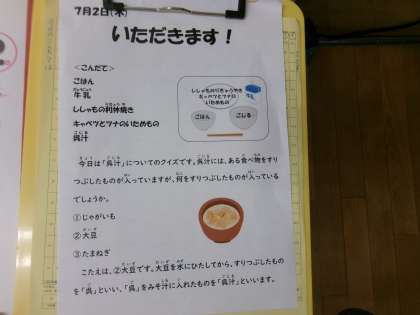 7月2日(木)
いただきます！
＜こんだて＞
ごはん
牛乳
ししゃもの利休焼き
キャベツとツナのいためもの
呉汁
ししゃものりきゅうやき
キャベツとツナの
いためもの
ごはん
ごじる
今日は「呉汁」についてのクイズです。呉汁には、ある食べ物をすり
つぶしたものが入っていますが、何をすりつぶしたものが入っている
でしょうか。
①じゃがいも
②大豆
③たまねぎ
こたえは、②大豆です。大豆を水にひたしてから、すりつぶしたもの
を「呉」といい、「呉」をみそ汁に入れたものを「呉汁」といいます。